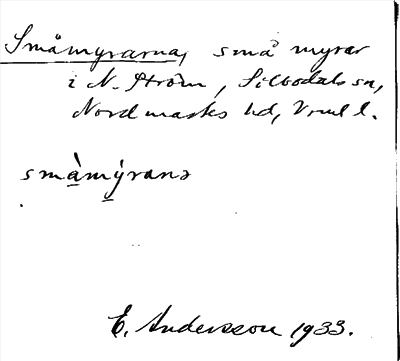 Småmyrarna, små myrar
i N. Ström, Silbodals sn,
Nordmarks hd, Vrml l.
småmýranə
E. Andersson 1933.